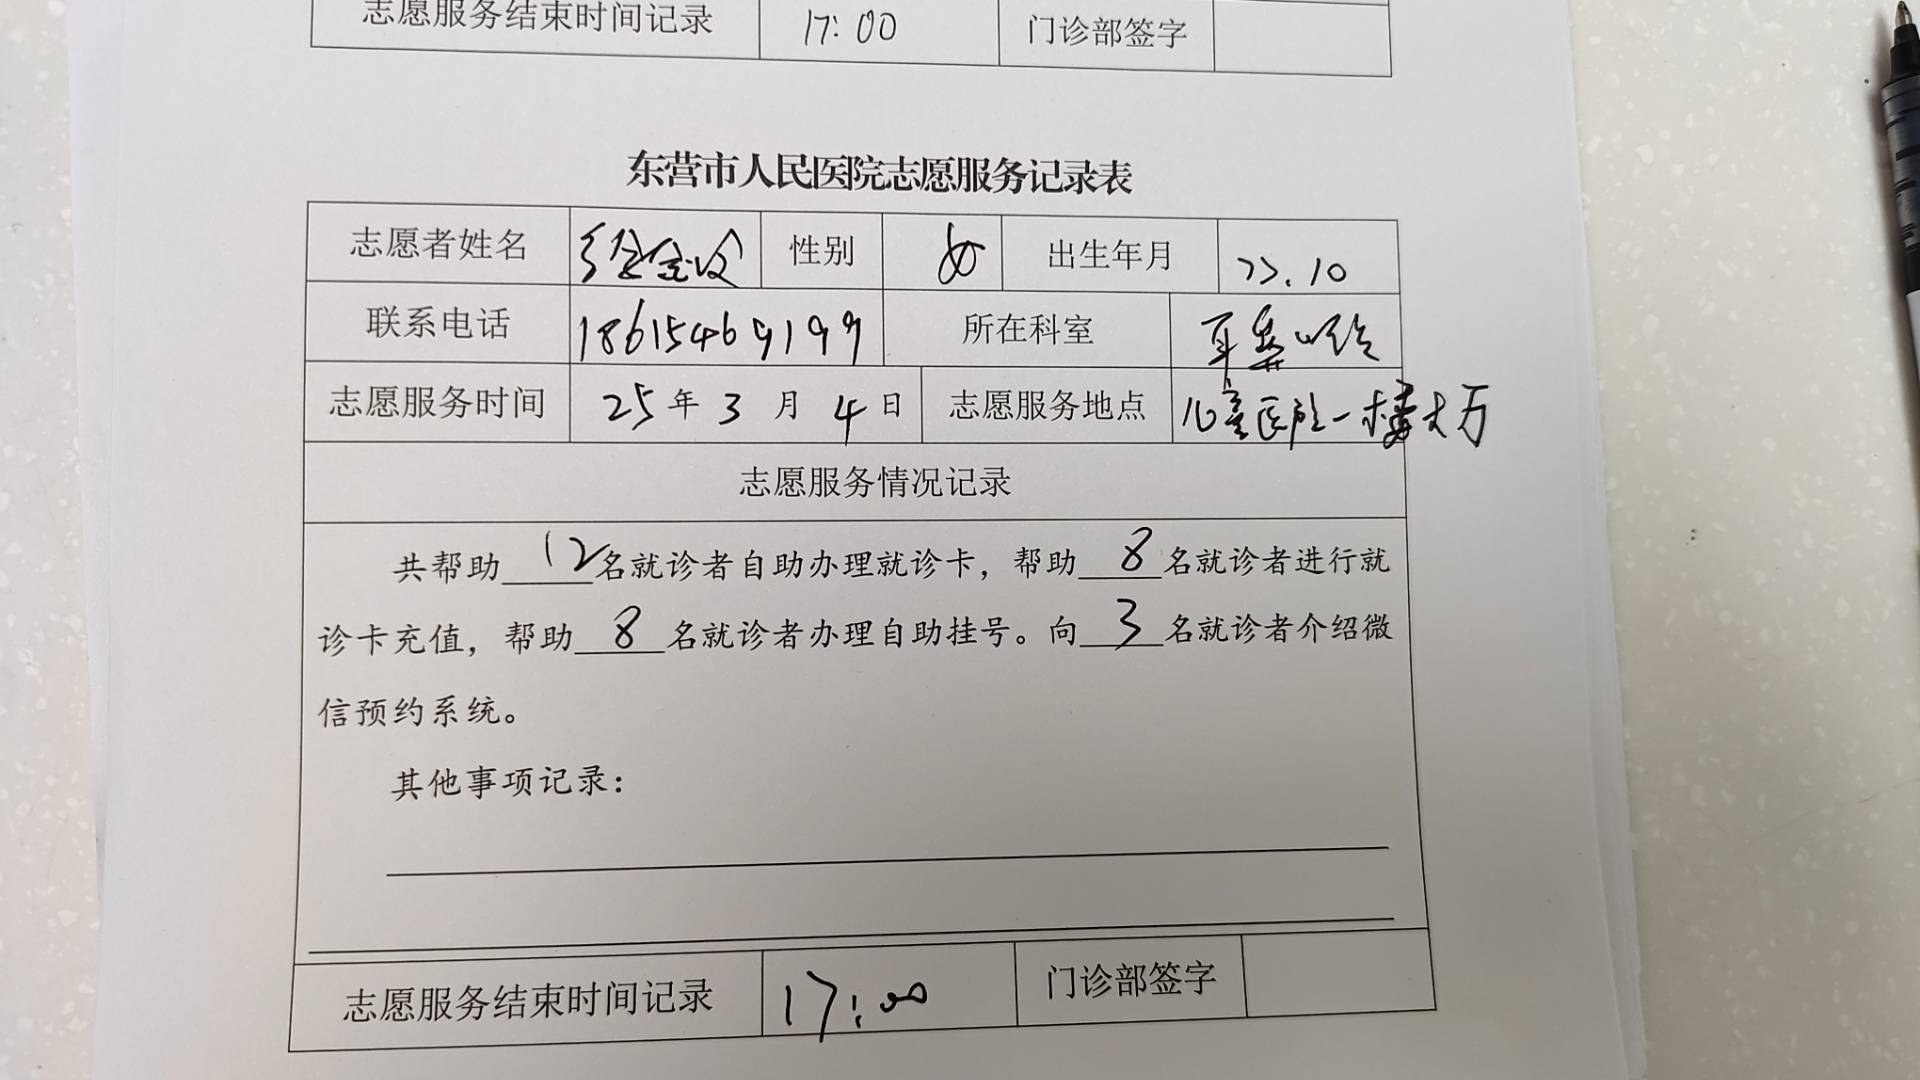 志愿服务结束时间记录 17:00 门诊部签字
东营市人民医院志愿服务记录表
志愿者姓名 性别 女 出生年月 77.10
联系电话 18615469199 所在科室 耳鼻咽喉
志愿服务时间 25年3月4日 志愿服务地点 儿童医院一楼大厅
志愿服务情况记录
共帮助12名就诊者自助办理就诊卡，帮助8名就诊者进行就
诊卡充值，帮助8名就诊者办理自助挂号。向3名就诊者介绍微
信预约系统。
其他事项记录：
志愿服务结束时间记录 17:00 门诊部签字